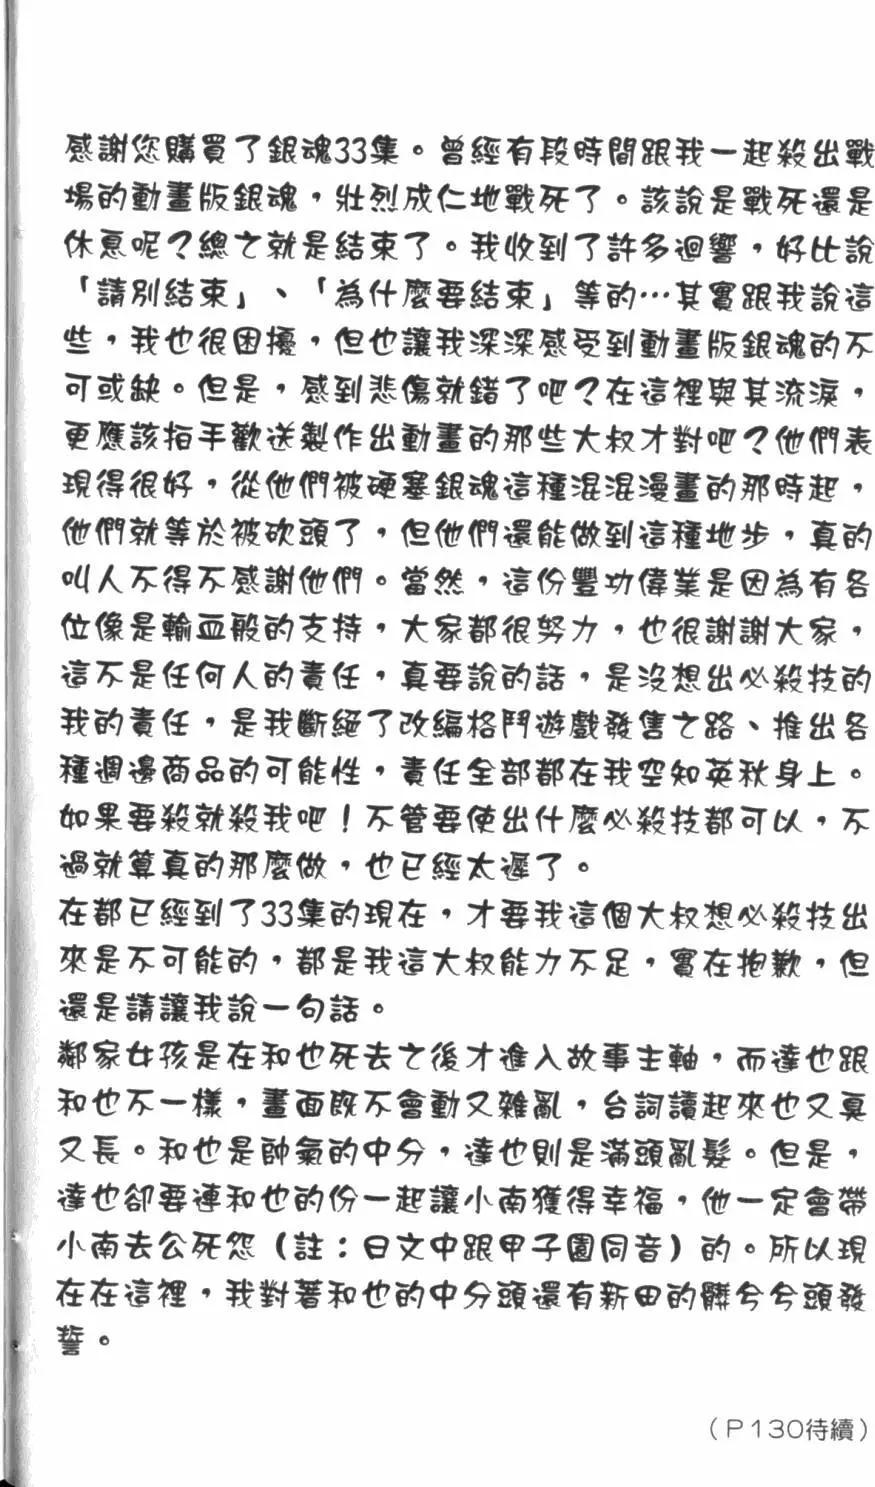 感謝您購買了銀魂33集。曾經有段時間跟我一起殺出戰
場的動畫版銀魂，壯烈成仁地戰死了。該說是戰死還是
休息呢？總之就是結束了。我收到了許多迴響，好比說
「請別結束」、「為什麼要結束」等的…其實跟我說這
些，我也很困擾，但也讓我深深感受到動畫版銀魂的不
可或缺。但是，感到悲傷就錯了吧？在這裡與其流淚，
更應該拍手歡送製作出動畫的那些大叔才對吧？他們表
現得很好，從他們被硬塞銀魂這種混混漫畫的那時起，
他們就等於被砍頭了，但他們還能做到這種地步，真的
叫人不得不感謝他們。當然，這份豐功偉業是因為有各
位像是輸血般的支持，大家都很努力，也很謝謝大家，
這不是任何人的責任，真要說的話，是沒想出必殺技的
我的責任，是我斷絕了改編格鬥遊戲發售之路、推出各
種週邊商品的可能性，責任全部都在我空知英秋身上。
如果要殺就殺我吧！不管要使出什麼必殺技都可以，不
過就算真的那麼做，也已經太遲了。
在都已經到了33集的現在，才要我這個大叔想必殺技出
來是不可能的，都是我這大叔能力不足，實在抱歉，但
還是請讓我說一句話。
鄰家女孩是在和也死去之後才進入故事主軸，而達也跟
和也不一樣，畫面既不會動又雜亂，台詞讀起來也又臭
又長。和也是帥氣的中分，達也則是滿頭亂髮。但是，
達也卻要連和也的份一起讓小南獲得幸福，他一定會帶
小南去公死怨（註：日文中跟甲子園同音）的。所以現
在在這裡，我對著和也的中分頭還有新田的髒兮兮頭發
誓。
（P130待續）